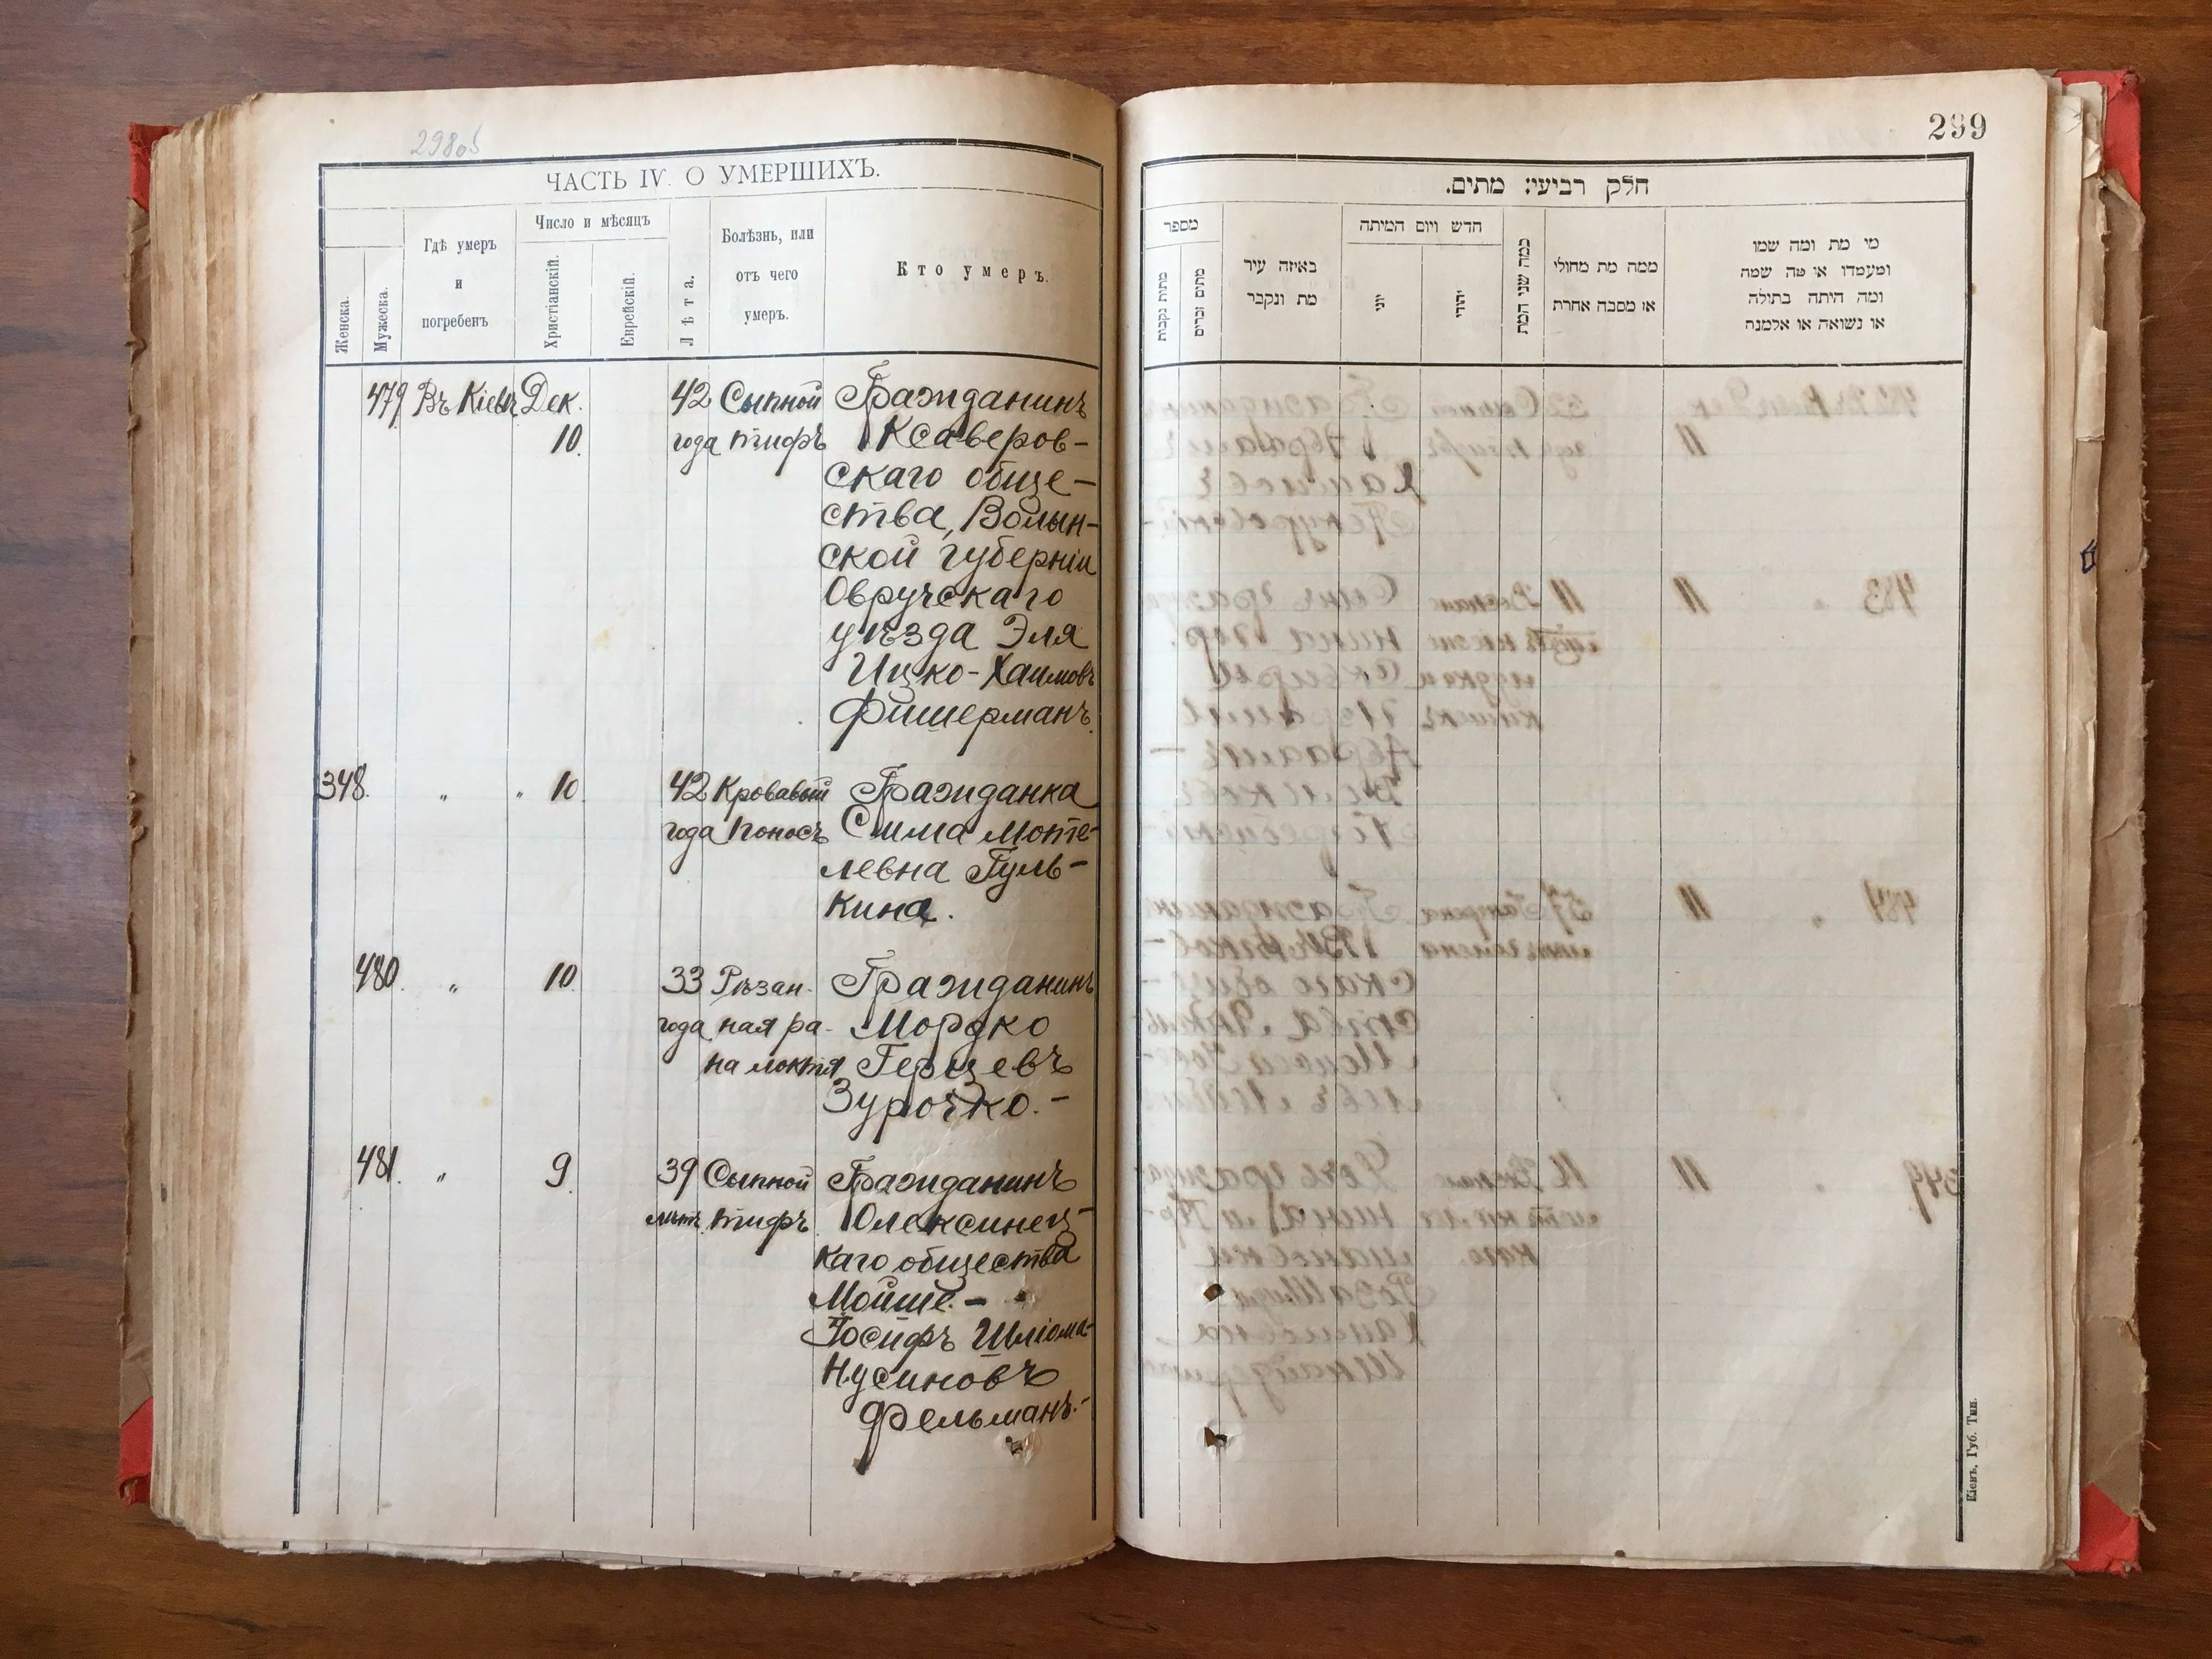 298об
ЧАСТЬ IV. О УМЕРШИХЪ.
Женска.
Мужеска.
Гдѣ умеръ
и
погребенъ
Число и мѣсяцъ
Христіанскій.
Еврейскій.
Лѣта.
Болѣзнь, или
отъ чего
умеръ.
Кто умеръ.
479 Въ Кіевѣ Дек. 42 Сыпной Гражданинъ
10. года тифъ Ксаверов-
скаго обще-
ства, Волын-
ской губерніи
Овручскаго
уѣзда Эля
Ицко-Хаимовъ
Фишерманъ.
348. " " 10. 42 Кровавый Гражданка
года поносъ Сима Моте-
левна Гуль-
кина.
480. " 10. 33 Рѣзан- Гражданинъ
года ная ра- Мордко
на локтя Герцевъ
Зурочко.-
481. " 9. 39 Сыпной Гражданинъ
лѣтъ тифъ Олексинец-
каго общества
Мойше-
Іосифъ Шліома-
Нусиновъ
Фельманъ.-
299
חלק רביעי: מתים.
מספר
מתות נקבות
מתים זכרים
באיזה עיר
מת ונקבר
חדש ויום המיתה
יוני
יהודי
כמה שני המת
ממה מת מחולי
או מסבה אחרת
מי מת ומה שמו
ומעמדו או מה שמה
ומה היתה בתולה
או נשואה או אלמנה
Кіевъ, Губ. Тип.